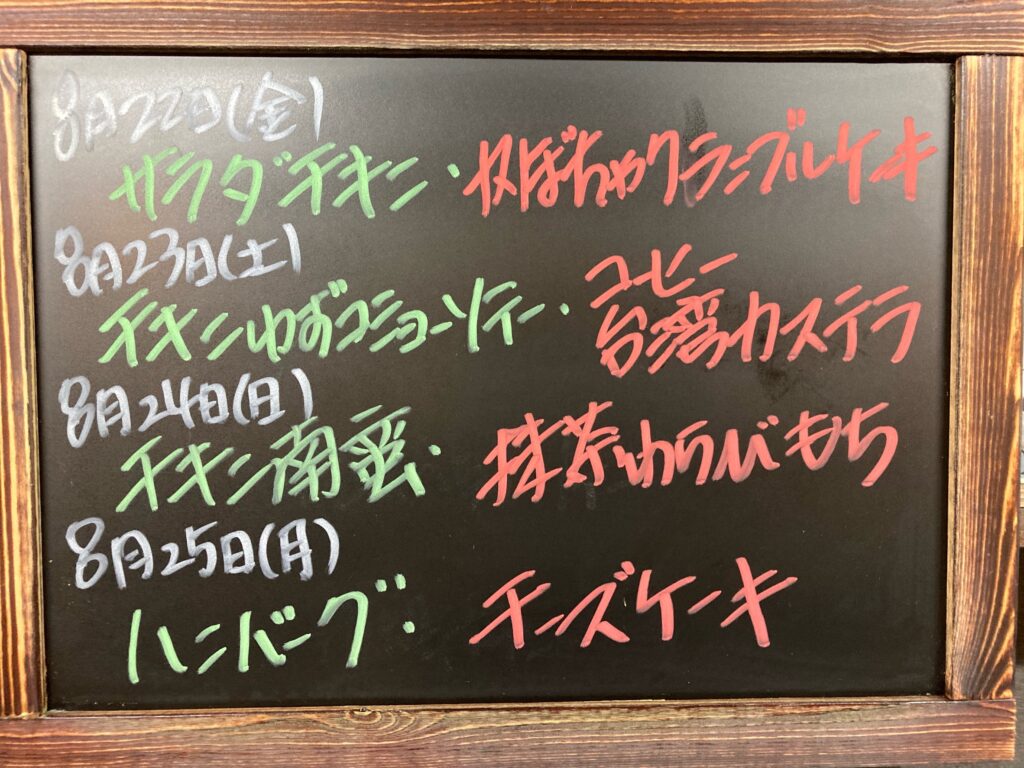 8月22日(金)
サラダチキン・かぼちゃクランブルケーキ
8月23日(土)
コーヒー
チキンゆずコショーソテー・台湾カステラ
8月24日(日)
チキン南蛮・抹茶わらびもち
8月25日(月)
ハンバーグ・チーズケーキ